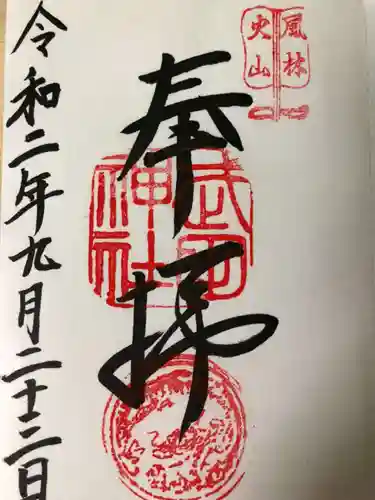 風林
火山
奉拝
武田
神社
令和二年九月二十二日